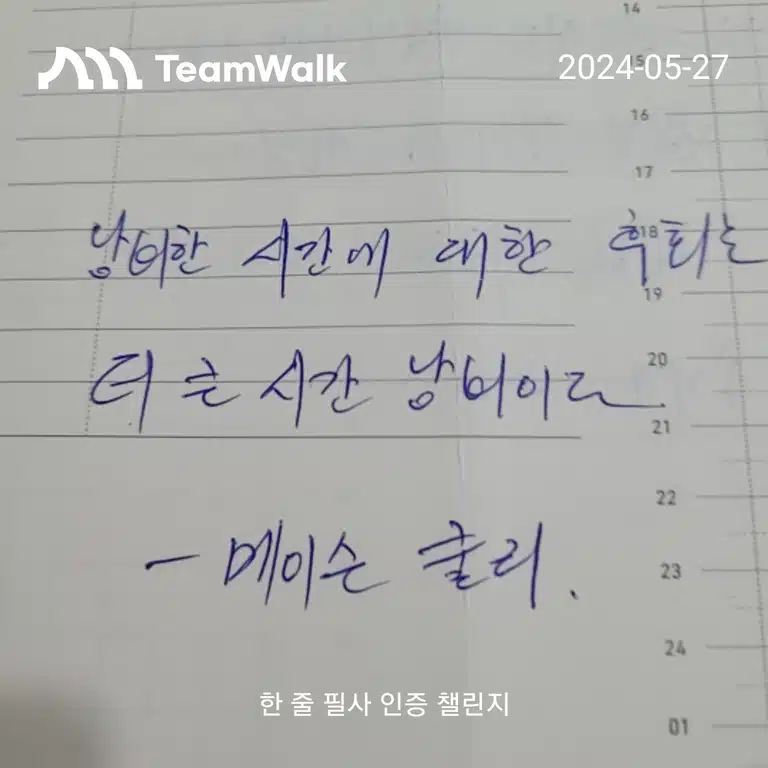 TeamWalk 2024-05-27
14
15
16
17
낭비한 시간에 대한 후회는
18
19
더 큰 시간 낭비이다.
20
21
22
- 메이슨 쿨리.
23
24
01
한 줄 필사 인증 챌린지